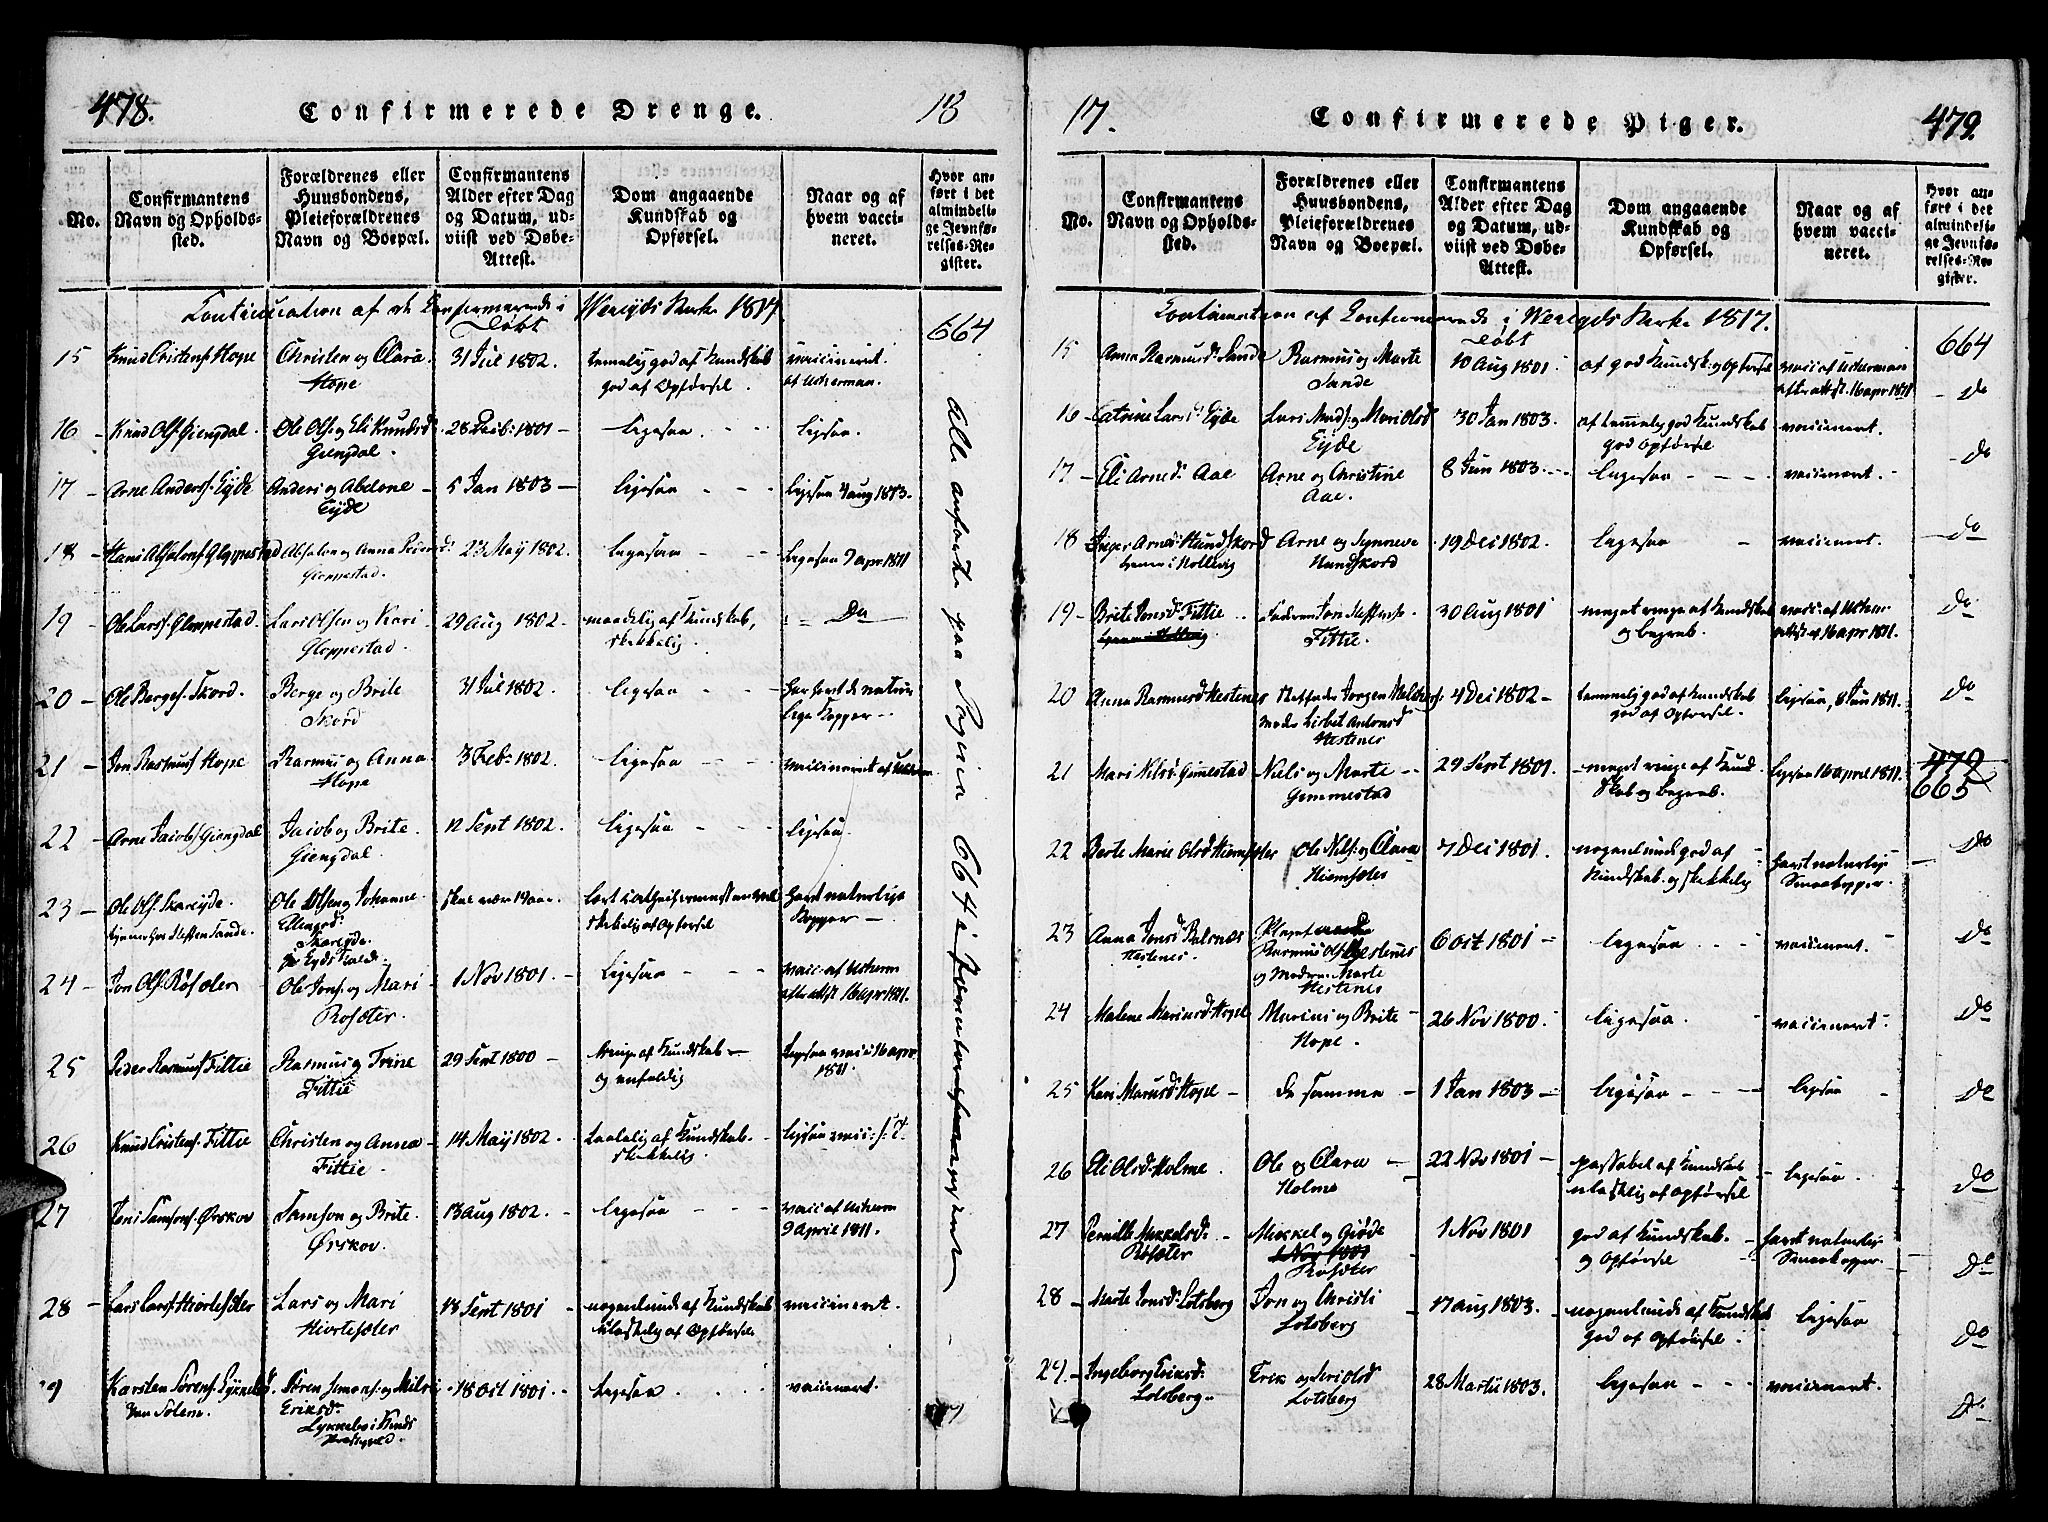 478. Confirmerede Drenge. 18
No.
Confirmantens Navn og Opholds-sted.
Forældrenes eller Huusbondens, Pleieforældrenes Navn og Boepæl.
Confirmantens Alder efter Dag og Datum, ud-viist ved Døbe-Attest.
Dom angaaende Kundskab og Opførsel.
Naar og af hvem vacci-neret.
Hvor an-ført i det almindeli-ge Jevnfø-relses-Re-gister.
Continuation af de Confirmerede i Wereyds Kirke 1817
Døbt
664
15 Knud Cristens. Hope Christen og Clara Hope 31 Jul 1802. temelig god af Kundskab god af Opførsel. vaccineret af Ucherman.
16 Knud Ols. Giengdal. Ole Ols. og Eli Knudsd Giengdal. 28 Feb. 1801 ligesaa ligesaa.
17 Arne Anders. Eyde Anders og Abelone Eyde 5 Jan 1803 ligesaa ligesaa 4 aug 1813.
18 Absalon og Anna Gloppestad. 23 May 1802. ligesaa ligesaa 9 apr 1811
19 Ole Lars. Gloppestad. Lars Olsen og Kari Gloppestad 29 Aug 1802. maadelig af Kundskab, skikkelig. Do
20 Ole Berges. Skord. Berge og Brite Skord 31 Jul 1802. ligesaa har havt de naturlige Kopper
21 Jon Rasmus. Hope Rasmus og Anna Hope 3 Feb. 1802. ligesaa vaccineret af Ucherm
22 Arne Jacobs. Giengdal Jacob og Brite Giengdal. 12 Sept 1802. ligesaa ligesaa.
23 Ole Ols. Skareyde. Ole Olsen og Johanne Ellingsd. Skareyde. skal være 19 aar. skikkelig af Opførsel havt naturlige Kopper
24 Jon Ols. Røsæter Ole Jons. og Mari Rosæter. 1 Nov 1801. ligesaa vacc. af Ucherm efter attest 16 apr 1811.
25 Peder Rasmus. Fittie Rasmus og Trine Fittie 29 Sept 1800 ringe af Kundskab og enfoldig ligesaa vacc 16 apr. 1811.
26 Knud Cristens. Fittie Christen og Anna Fittie. 14 May 1802. taalelig af Kundskab. skikkelig. ligesaa vacc:
27 Jens Samsons. Ørskov Samson og Brite Ørskov. 13 Aug 1802. ligesaa vacc af Ucherm 9 april 1811.
28 Lars Lars. Hiortesæter Lars og Mari Hiortesæter 18 Sept 1801 nogenlunde af Kundskab ulastelig af Opførsel vaccineret.
Karsten Sørens. Lykkebø Søren Simons. og Eriksd. Lykkebø i Kinds Præstegield. 18 Oct 1801 ligesaa vaccineret.
Alle anførte paa Pagina 664 i
17. Confirmerede Piger. 479.
No.
Confirmantens Navn og Opholds-sted.
Forældrenes eller Huusbondens, Pleieforældrenes Navn og Boepæl.
Confirmantens Alder efter Dag og Datum, ud-viist ved Døbe-Attest.
Dom angaaende Kundskab og Opførsel.
Naar og af hvem vacci-neret.
Hvor an-ført i det almindeli-ge Jevnfø-relses-Re-gister.
Continuation af Confirmerede i Wereyds Kirke 1817.
Døbt
15 Anna Rasmusd. Sande Rasmus og Marte Sande 10 Aug 1801 af god Kundsk. og Opførsel vacc af Ucherman efter attest. 16 apr 1811 664
16 Catrine Larsd. Eyde Lars Mads. og Mari Olsd Eyde 30 Jan 1803. af temmelig god Kundskab god Opførsel vaccineret. Do
17 Eli Arnesd. Aae Arne og Christine Aae. 8 Jun 1803. ligesaa vaccineret. Do
18 Arne og Synneve Hundskord 19 Dec 1802. ligesaa vaccineret. Do
19 Brite Jonsd. Fittie Faderen Jon Fittie. 30 Aug 1801 meget ringe af Kundskab og begreb. vacc. af Ucherm attest. 16 apr 1811. Do
20 Anna Rasmusd Hestenes Stiffader Jørgen moder Lisbet Antonsd Hestenes 4 Dec 1802 temmelig god af Kundskab god af Opførsel. ligesaa, 8 Jun 1811. Do
21 Mari Nilsd. Gimestad Niels og Marte Gimmestad 29 Sept 1801. meget ringe af Kundskab og begreb. ligesaa 16 april 1811. 479 665
22 Berte Marie Olsd Hiemsæter Ole Nils. og Clara Hiemsæter 7 Dec 1801. nogenlunde god af Kundskab. og skikkelig havt naturlige Smaakopper. Do
23 Anna Jonsd. Hestenes Rasmus Ols. Hestenes og Modren Marte Hestenes 6 Oct 1801 ligesaa vaccineret. Do
24 Malene Mariusd. Hope Marius og Brite Hope. 26 Nov 1800. ligesaa. vaccineret. Do
25 Kari Mariusd. Hope de samme 1 Jan 1803 ligesaa ligesaa Do
26 Eli Olsd. Holme. Ole og Clara Holme 22 Nov 1801 passabel af Kundskab ulastelig af Opførsel ligesaa Do
27 Pernille Mikkelsd. Røsæter Mikkel og Giøde 1 Nov 1801 Røsæter 1 Nov 1801 god af Kundskab. og Opførsel havt naturlige Smaakopper. Do
28 Marte Jonsd. Lotsberg Jon og Christi Lotsberg 17 Aug 1803. nogenlunde af Kundskab god af Opførsel. ligesaa Do
29. Ingeborg Eriksd. Lotsberg Erik og Siri Olsd Lotsberg 28 Martii 1803. ligesaa vaccineret. Do